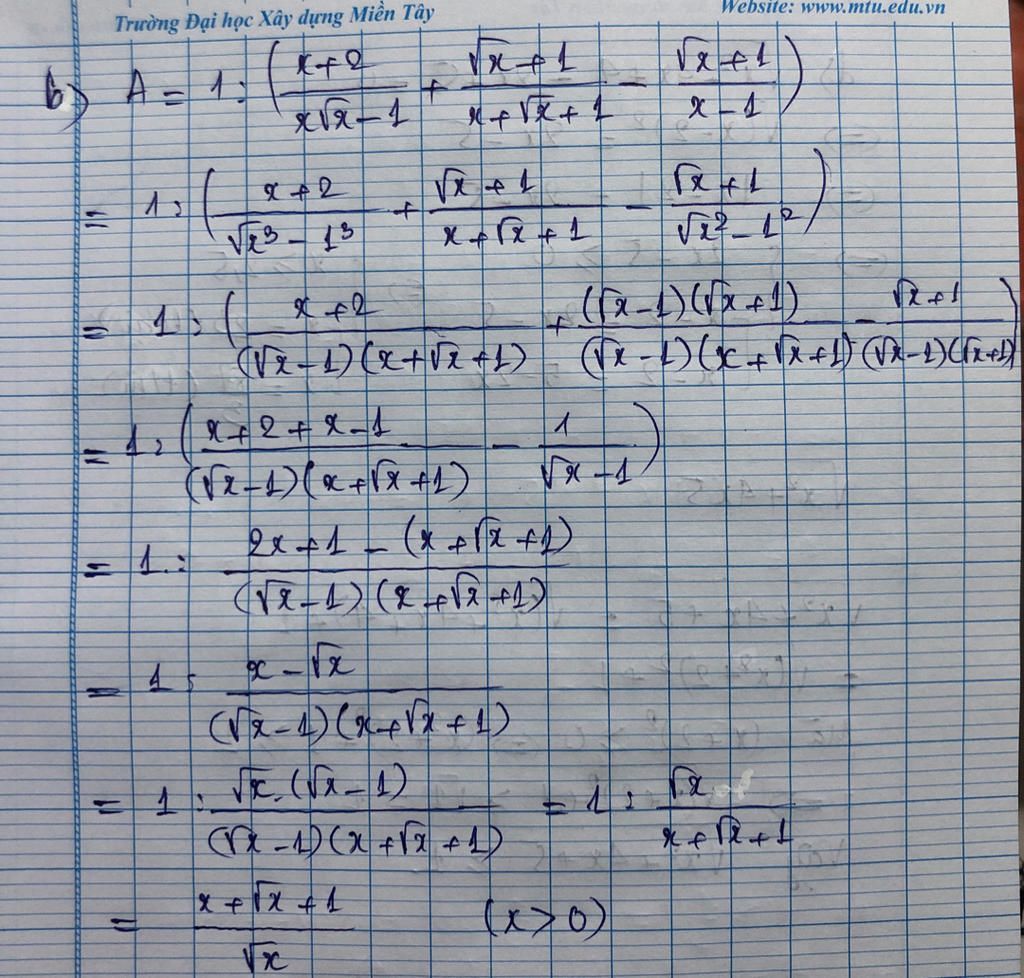 Trường Đại học Xây dựng Miền Tây Website: www.mtu.edu.vn
b) A = 1 : ( (x+2)/(x√x - 1) + (√x + 1)/(x + √x + 1) - (√x + 1)/(x - 1) )
= 1 : ( (x+2)/(√x³ - 1³) + (√x + 1)/(x + √x + 1) - (√x + 1)/(√x² - 1²) )
= 1 : ( (x+2)/((√x - 1)(x + √x + 1)) + ((√x - 1)(√x + 1))/((√x - 1)(x + √x + 1)) - (√x + 1)/((√x - 1)(√x + 1)) )
= 1 : ( (x + 2 + x - 1)/((√x - 1)(x + √x + 1)) - 1/(√x - 1) )
= 1 : (2x + 1 - (x + √x + 1))/((√x - 1)(x + √x + 1))
= 1 : (x - √x)/((√x - 1)(x + √x + 1))
= 1 : (√x.(√x - 1))/((√x - 1)(x + √x + 1)) = 1 : √x/(x + √x + 1)
= (x + √x + 1)/√x (x > 0)